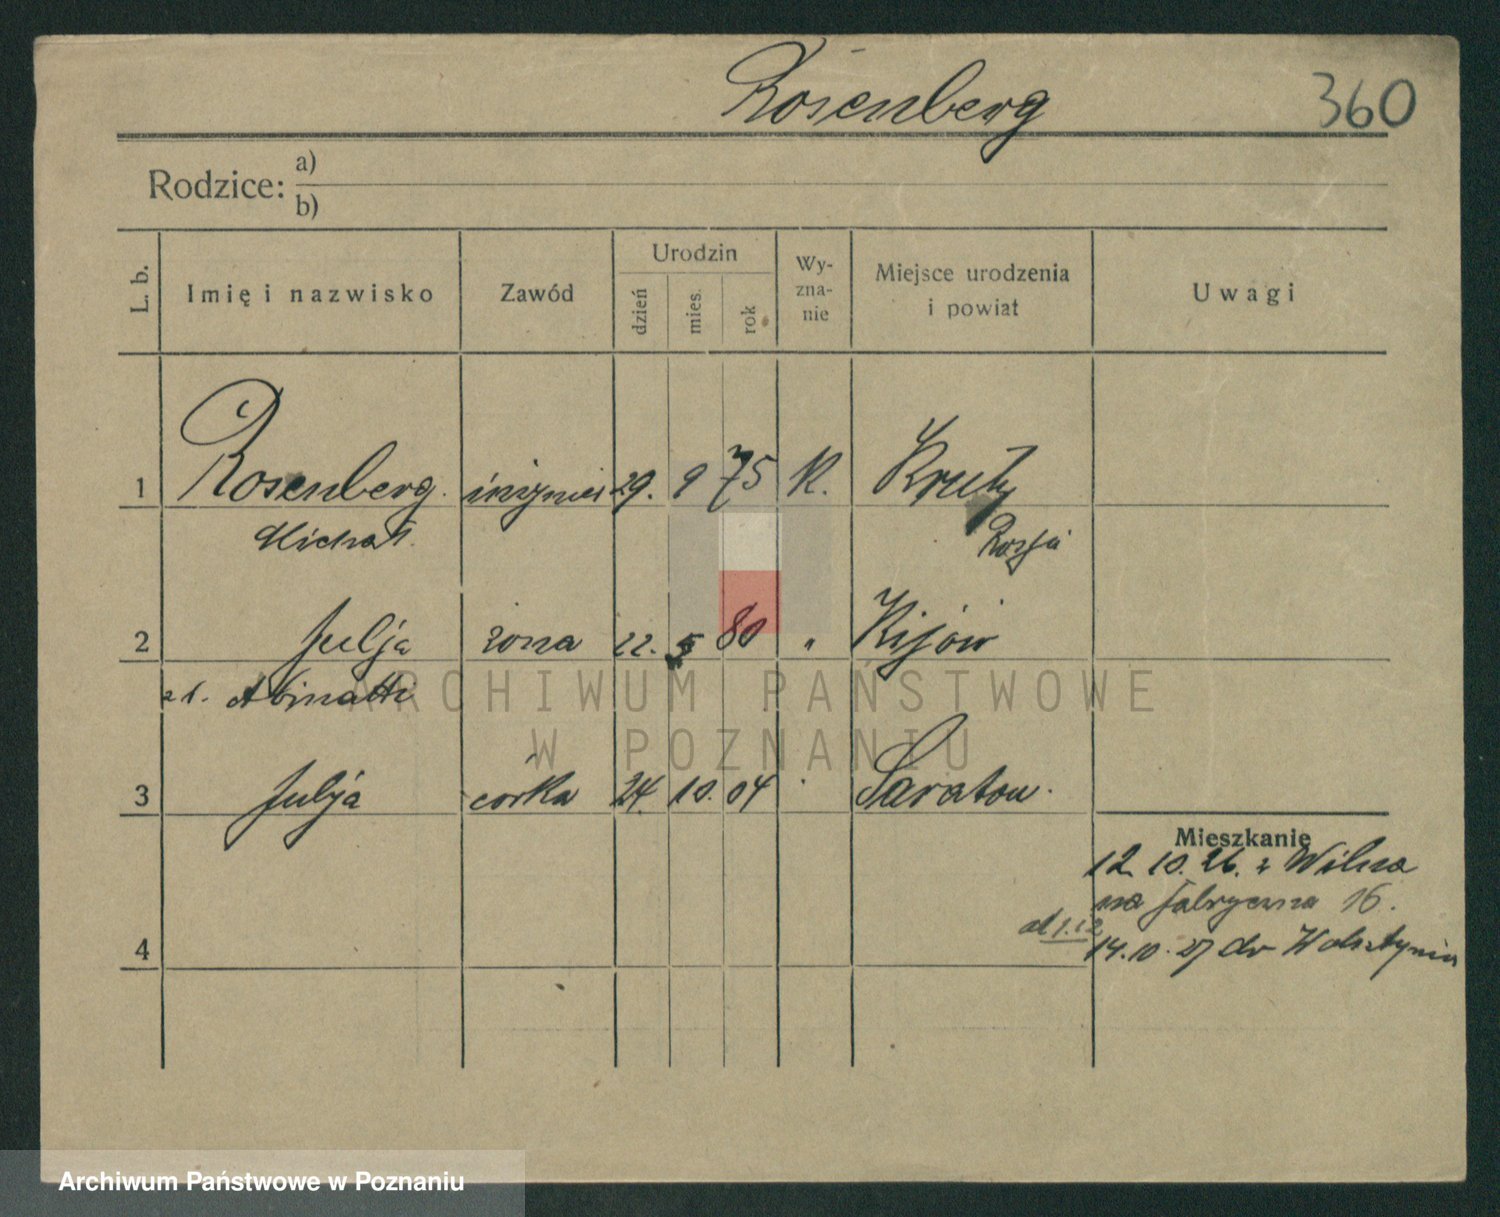 Rosenberg 360
Rodzice: a)
b)
L. b. Imię i nazwisko Zawód Urodzin dzień mies. rok Wy-zna-nie Miejsce urodzenia i powiat Uwagi
1 Rosenberg inżynier 29. 9 75 R. Kruty
Michał Rosja
2 Julja żona 22. 5 80 " Kijów
ARCHIWUM PAŃSTWOWE
W POZNANIU
3 Julja córka 24. 10. 04 Saratow.
Mieszkanie
12. 10. 26. z Wilna
na Fabryczna 16.
4 14. 10. 27 do Wolsztynia
Archiwum Państwowe w Poznaniu